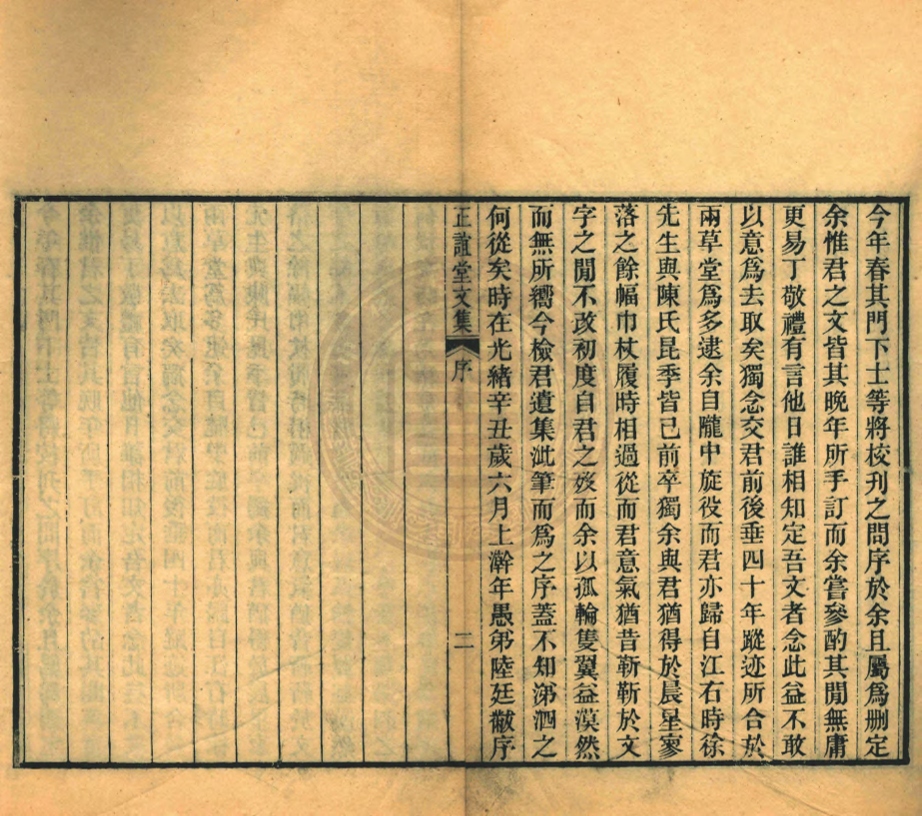 今年春其門下士等將校刊之問序於余且屬爲删定
余惟君之文皆其晚年所手訂而余嘗參酌其閒無庸
更易丁敬禮有言他日誰相知定吾文者念此益不敢
以意爲去取矣獨念交君前後垂四十年蹤迹所合於
兩草堂爲多逮余自隴中旋役而君亦歸自江右時徐
先生與陳氏昆季皆已前卒獨余與君猶得於晨星寥
落之餘幅巾杖履時相過從而君意氣猶昔斬斬於文
字之閒不改初度自君之歿而余以孤輪隻翼益漠然
而無所嚮今檢君遺集泚筆而爲之序蓋不知涕泗之
何從矣時在光緒辛丑歲六月上澣年愚弟陸廷黻序
正誼堂文集 序 二